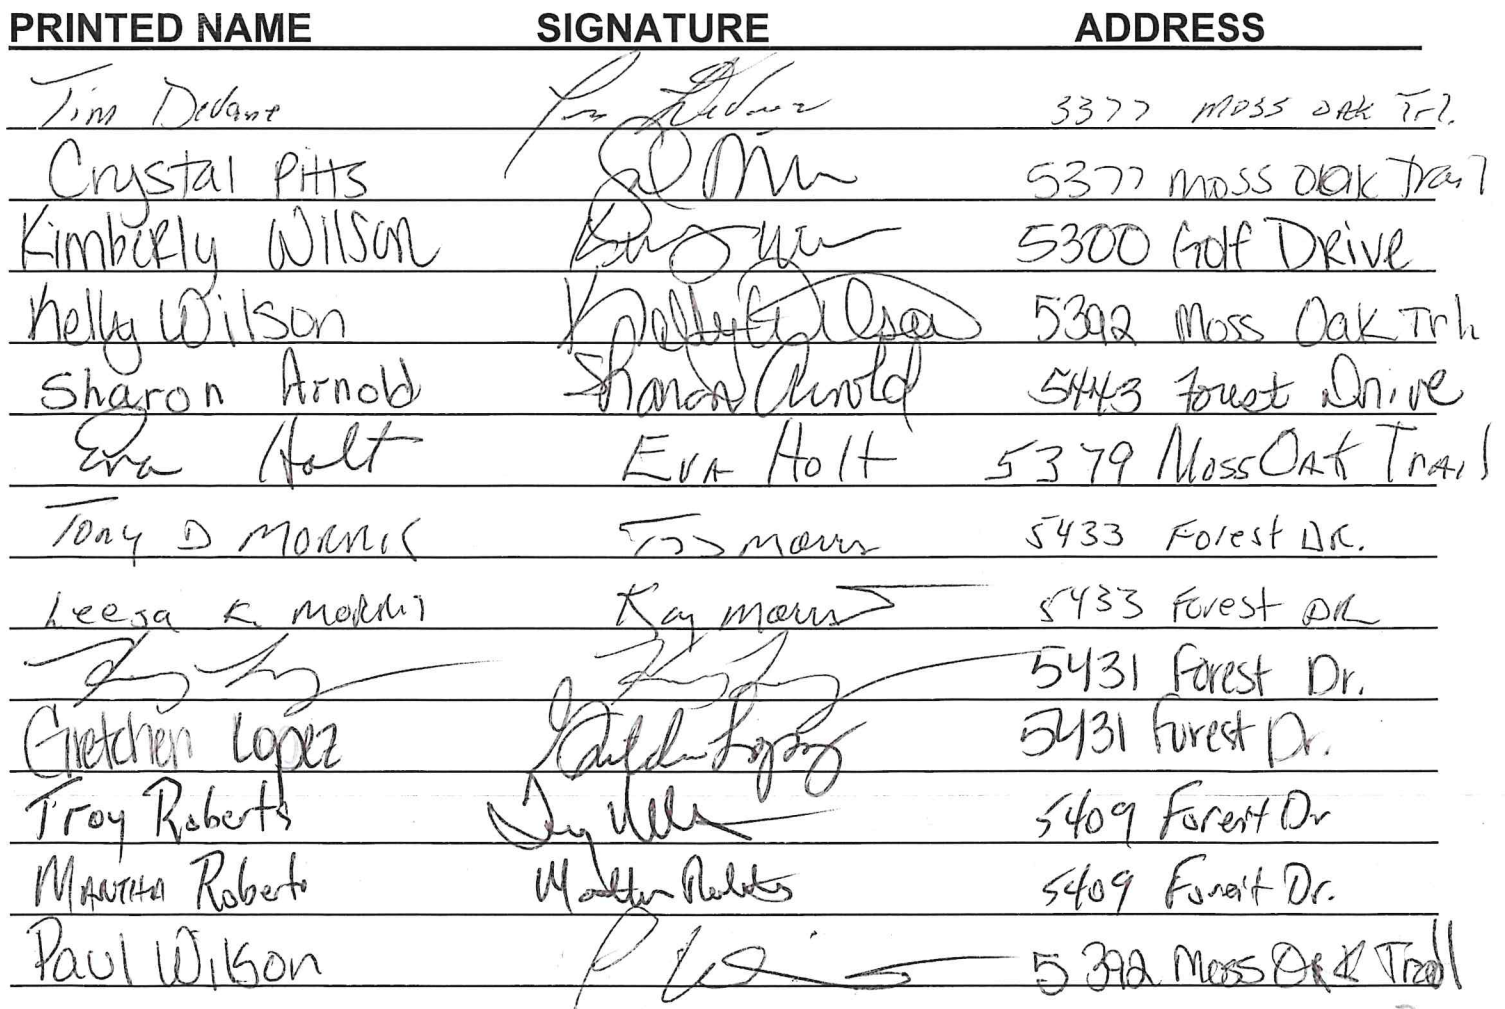 PRINTED NAME SIGNATURE ADDRESS
Tim Devane 3377 Moss Oak Trl.
Crystal Pitts 5377 Moss Oak Trail
Kimberly Wilson 5300 Golf Drive
Kelly Wilson Kelly Wilson 5392 Moss Oak Trh
Sharon Arnold Sharon Arnold 5443 Forest Drive
Eva Holt Eva Holt 5379 Moss Oak Trail
Tony D Morris Morris 5433 Forest DR.
Leesa K. Morris Kay Morris 5433 Forest DR
5431 Forest Dr.
Gretchen Lopez Gretchen Lopez 5431 Forest Dr.
Troy Roberts Troy 5409 Forest Dr
Martha Roberts Martha Roberts 5409 Forest Dr.
Paul Wilson 5392 Moss Oak Trail